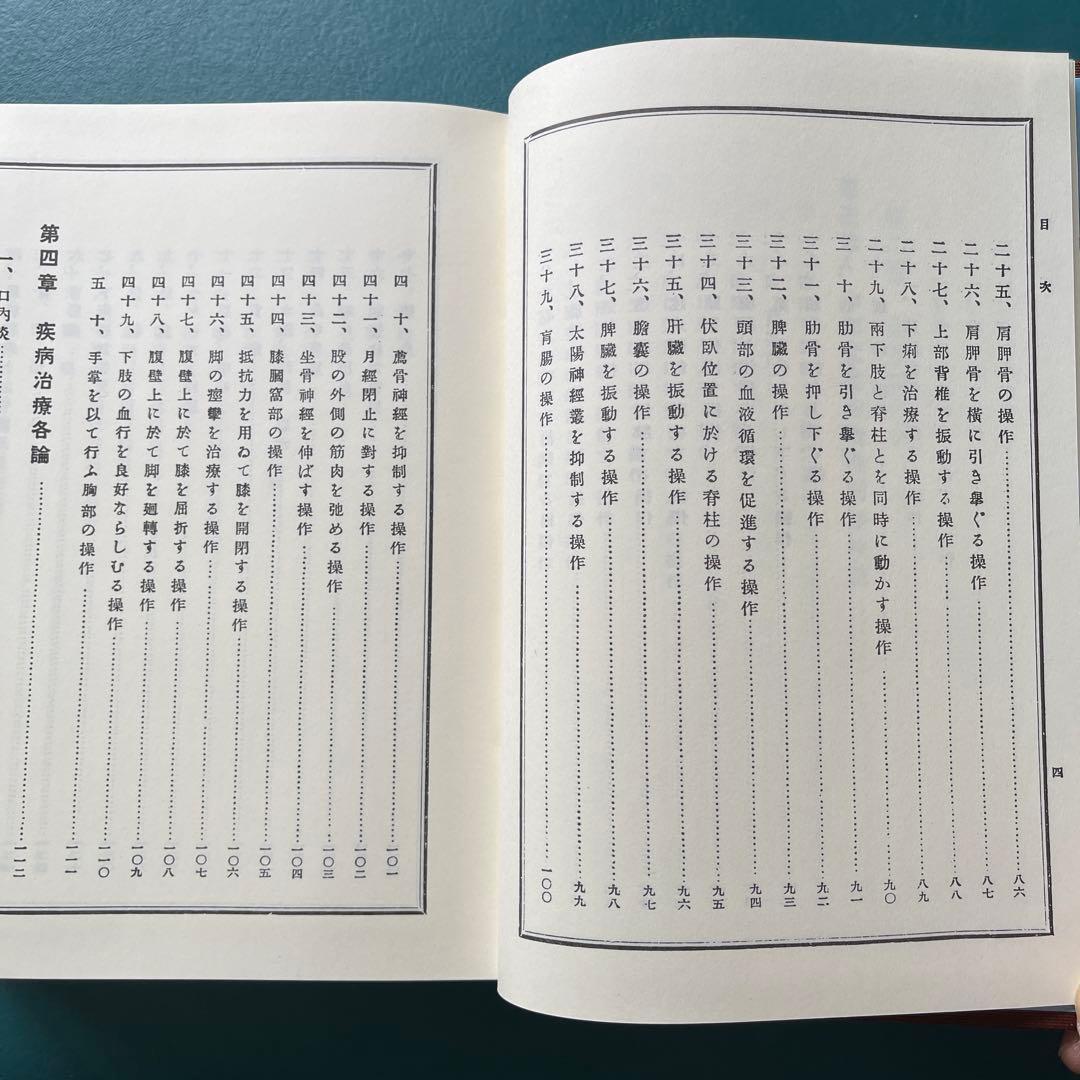 目次
四
二十五、肩胛骨の操作……八六
二十六、肩胛骨を橫に引き擧ぐる操作……八七
二十七、上部背椎を振動する操作……八八
二十八、下痢を治療する操作……八九
二十九、兩下肢と脊柱とを同時に動かす操作……九〇
三十、肋骨を引き擧ぐる操作……九一
三十一、肋骨を押し下ぐる操作……九二
三十二、脾臟の操作……九三
三十三、頭部の血液循環を促進する操作……九四
三十四、伏臥位置に於ける脊柱の操作……九五
三十五、肝臟を振動する操作……九六
三十六、膽囊の操作……九七
三十七、脾臟を振動する操作……九八
三十八、太陽神經叢を抑制する操作……九九
三十九、盲腸の操作……一〇〇
四十、薦骨神經を抑制する操作……一〇一
四十一、月經閉止に對する操作……一〇二
四十二、股の外側の筋肉を弛める操作……一〇三
四十三、坐骨神經を伸ばす操作……一〇四
四十四、膝膕窩部の操作……一〇五
四十五、抵抗力を用ゐて膝を開閉する操作……一〇六
四十六、脚の痙攣を治療する操作……一〇七
四十七、腹壁上に於て膝を屈折する操作……一〇八
四十八、腹壁上に於て脚を廻轉する操作……一〇九
四十九、下肢の血行を良好ならしむる操作……一一〇
五十、手掌を以て行ふ胸部の操作……一一一
第四章　疾病治療各論……一一二
一、口內炎……